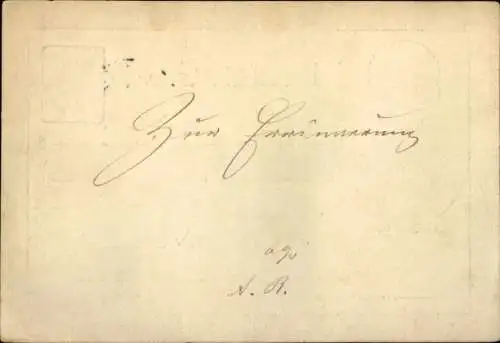 Zur Erinnerung
A. R.